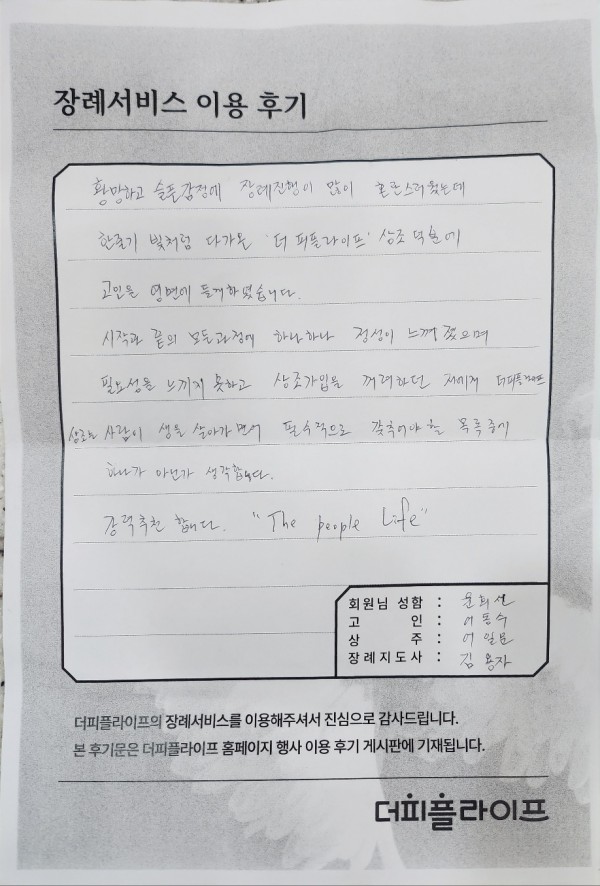 장례서비스 이용 후기
황망하고 슬픈감정에 장례진행이 많이 혼란스러웠는데
한줄기 빛처럼 다가온 '더 피플라이프' 상조 덕분에
고인을 영면에 들게하였습니다.
시작과 끝의 모든과정에 하나하나 정성이 느껴졌으며
필요성을 느끼지 못하고 상조가입을 꺼려하던 저에게 더피플라이프
상조는 사람이 생을 살아가면서 필수적으로 갖추어야할 목록중에
하나가 아닌가 생각합니다.
강력추천 합니다. "The people Life"
회원님 성함 : 윤희선
고 인 : 이동수
상 주 : 이일문
장례지도사 : 김용자
더피플라이프의 장례서비스를 이용해주셔서 진심으로 감사드립니다.
본 후기문은 더피플라이프 홈페이지 행사 이용 후기 게시판에 기재됩니다.
더피플라이프